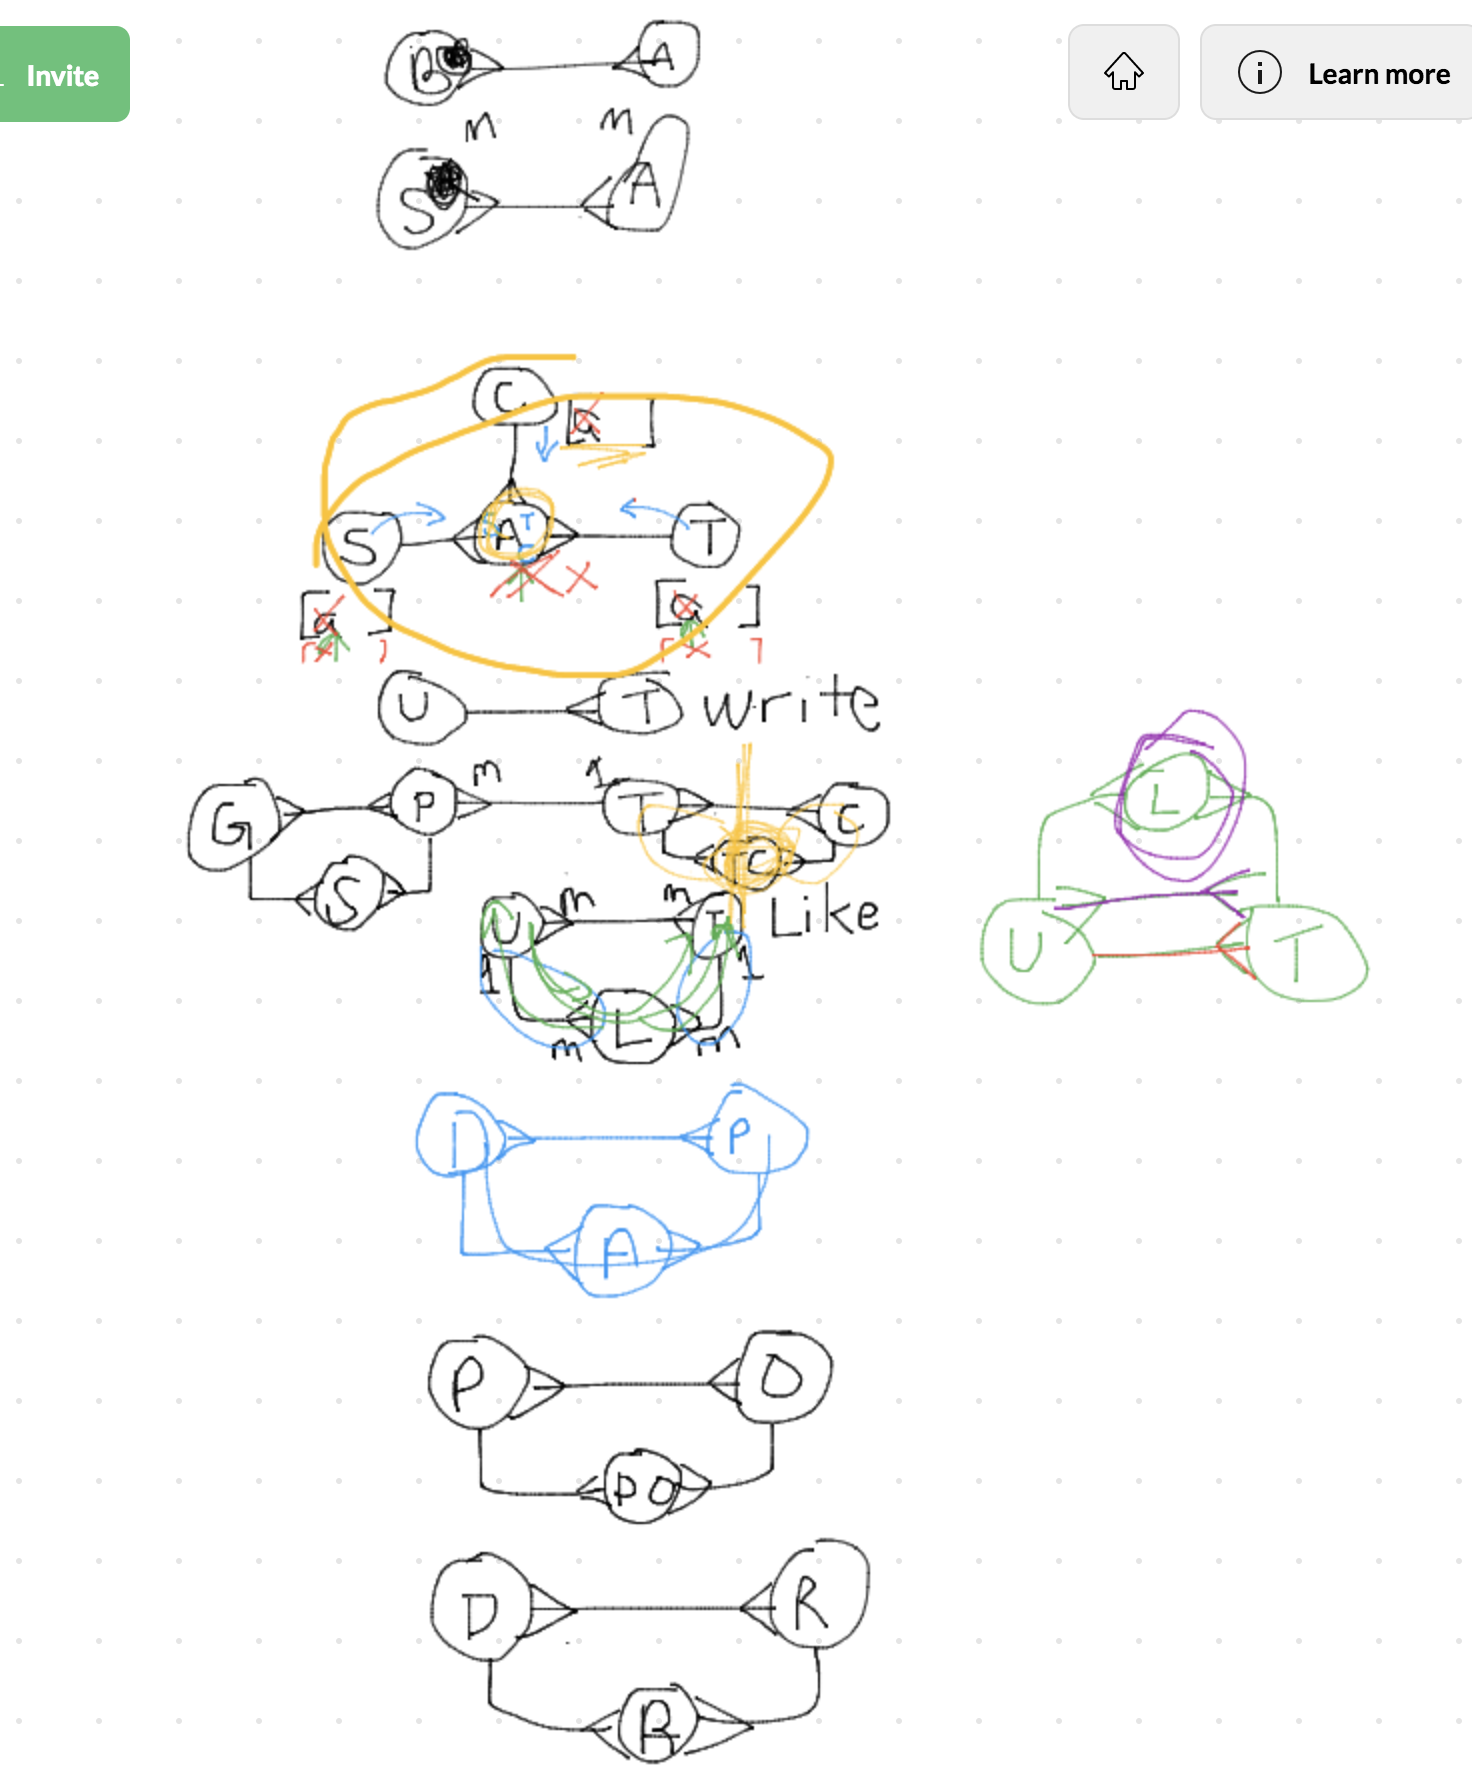 Invite
Learn more
B A
m m
S A
C [a ]
S A T
[a ] [a ]
U T write
G P m 1 T C
S TC
L
U m m T Like
1 1
L
m m
U T
D P
A
P O
PO
D R
R